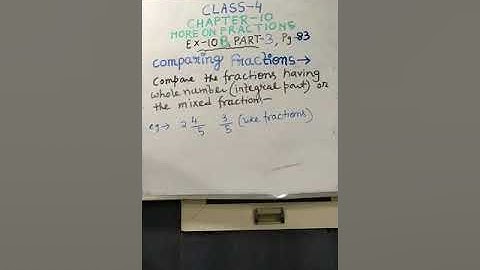 CLASS-4
CHAPTER-10
MORE ON FRACTIONS
EX-10 B, PART-3, Pg-93
Comparing Fractions→
Compare the fractions having
whole number (integral part) or
the mixed fraction-
eg→ 2 4/5 3/5 (like fractions)